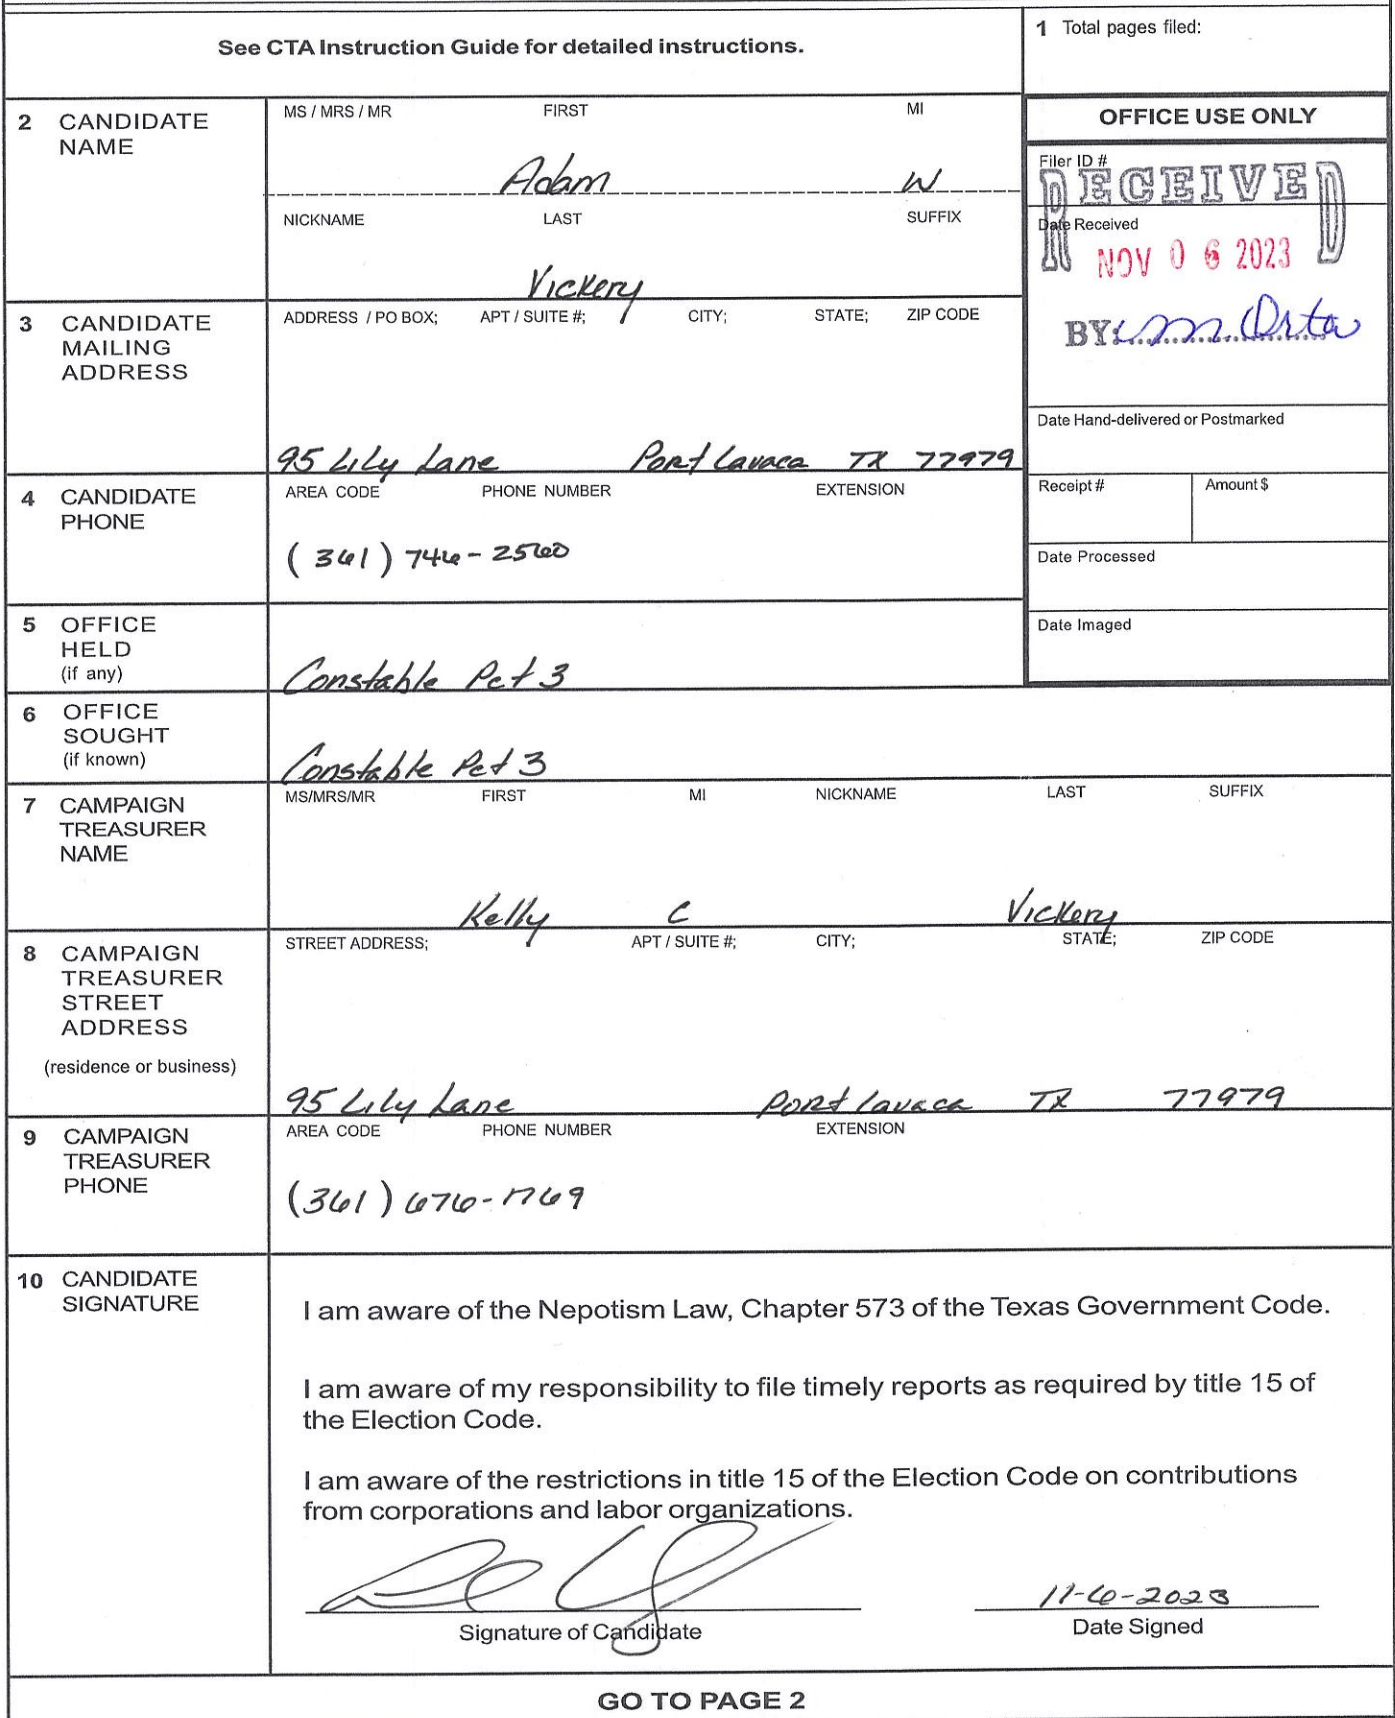 See CTA Instruction Guide for detailed instructions.
1 Total pages filed:
2 CANDIDATE NAME
MS / MRS / MR FIRST MI
Adam W
NICKNAME LAST SUFFIX
Vickery
OFFICE USE ONLY
Filer ID #
RECEIVED
Date Received
NOV 06 2023
BY: M Orta
Date Hand-delivered or Postmarked
Receipt # Amount $
Date Processed
Date Imaged
3 CANDIDATE MAILING ADDRESS
ADDRESS / PO BOX; APT / SUITE #; CITY; STATE; ZIP CODE
95 Lily Lane Port Lavaca TX 77979
4 CANDIDATE PHONE
AREA CODE PHONE NUMBER EXTENSION
(361) 746-2560
5 OFFICE HELD (if any)
Constable Pct 3
6 OFFICE SOUGHT (if known)
Constable Pct 3
7 CAMPAIGN TREASURER NAME
MS/MRS/MR FIRST MI NICKNAME LAST SUFFIX
Kelly C Vickery
8 CAMPAIGN TREASURER STREET ADDRESS
(residence or business)
STREET ADDRESS; APT / SUITE #; CITY; STATE; ZIP CODE
95 Lily Lane Port Lavaca TX 77979
9 CAMPAIGN TREASURER PHONE
AREA CODE PHONE NUMBER EXTENSION
(361) 676-1769
10 CANDIDATE SIGNATURE
I am aware of the Nepotism Law, Chapter 573 of the Texas Government Code.
I am aware of my responsibility to file timely reports as required by title 15 of
the Election Code.
I am aware of the restrictions in title 15 of the Election Code on contributions
from corporations and labor organizations.
11-6-2023
Signature of Candidate Date Signed
GO TO PAGE 2